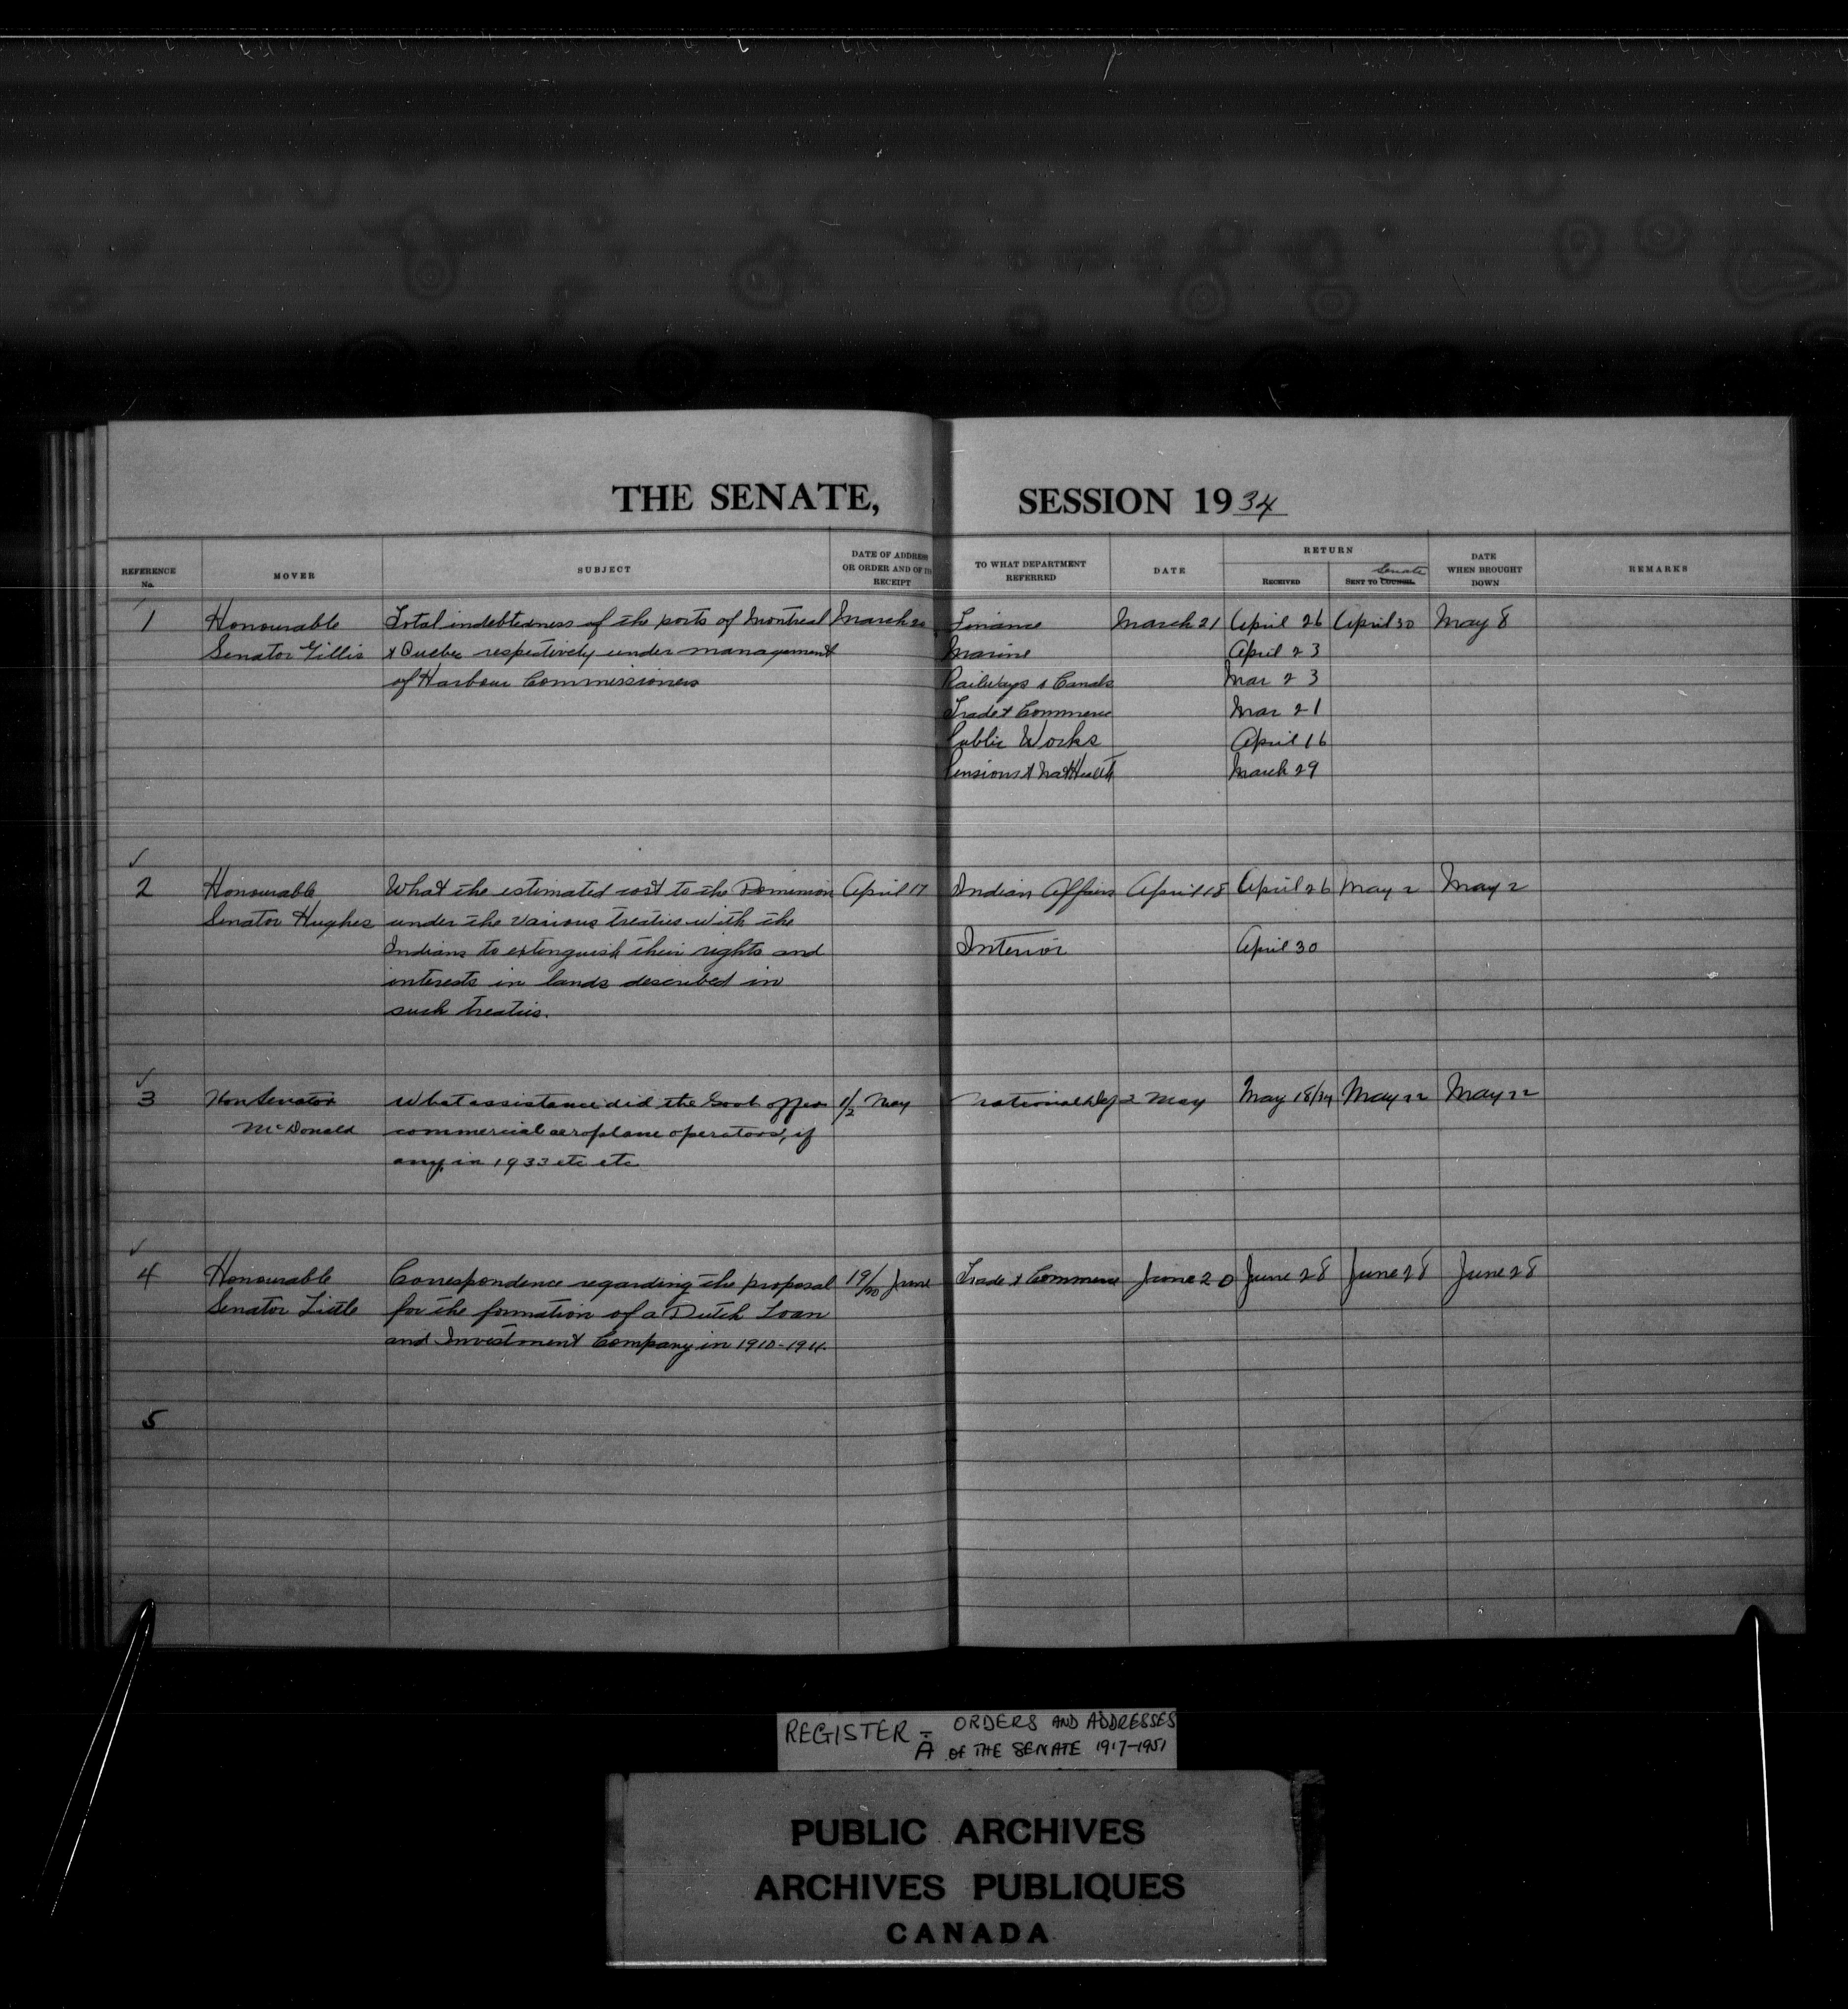 THE SENATE, SESSION 1934
REFERENCE No. MOVER SUBJECT DATE OF ADDRESS OR ORDER AND OF ITS RECEIPT TO WHAT DEPARTMENT REFERRED DATE RETURN RECEIVED SENT TO COUNCIL Senate DATE WHEN BROUGHT DOWN REMARKS
1 Honourable Total indebtedness of the ports of Montreal March 20 Finance March 21 April 26 April 30 May 8
Senator Gillis & Quebec respectively under management Marine April 23
of Harbour Commissioners Railways & Canals Mar 23
Trade & Commerce Mar 21
Public Works April 16
Pensions & Nat Health March 29
✓
2 Honourable What the estimated cost to the Dominion April 17 Indian Affairs April 18 April 26 May 2 May 2
Senator Hughes under the various treaties with the
Indians to extinguish their rights and Interior April 30
interests in lands described in
such treaties.
✓
3 Hon Senator What assistance did the Govt offer 1/2 May National Def 2 May May 18/34 May 22 May 22
McDonald commercial aeroplane operators, if
any, in 1933 etc etc
✓
4 Honourable Correspondence regarding the proposal 19/20 June Trade & Commerce June 20 June 28 June 28 June 28
Senator Little for the formation of a Dutch Loan
and Investment Company in 1910-1911.
5
REGISTER - ORDERS AND ADDRESSES
A OF THE SENATE 1917-1951
PUBLIC ARCHIVES
ARCHIVES PUBLIQUES
CANADA